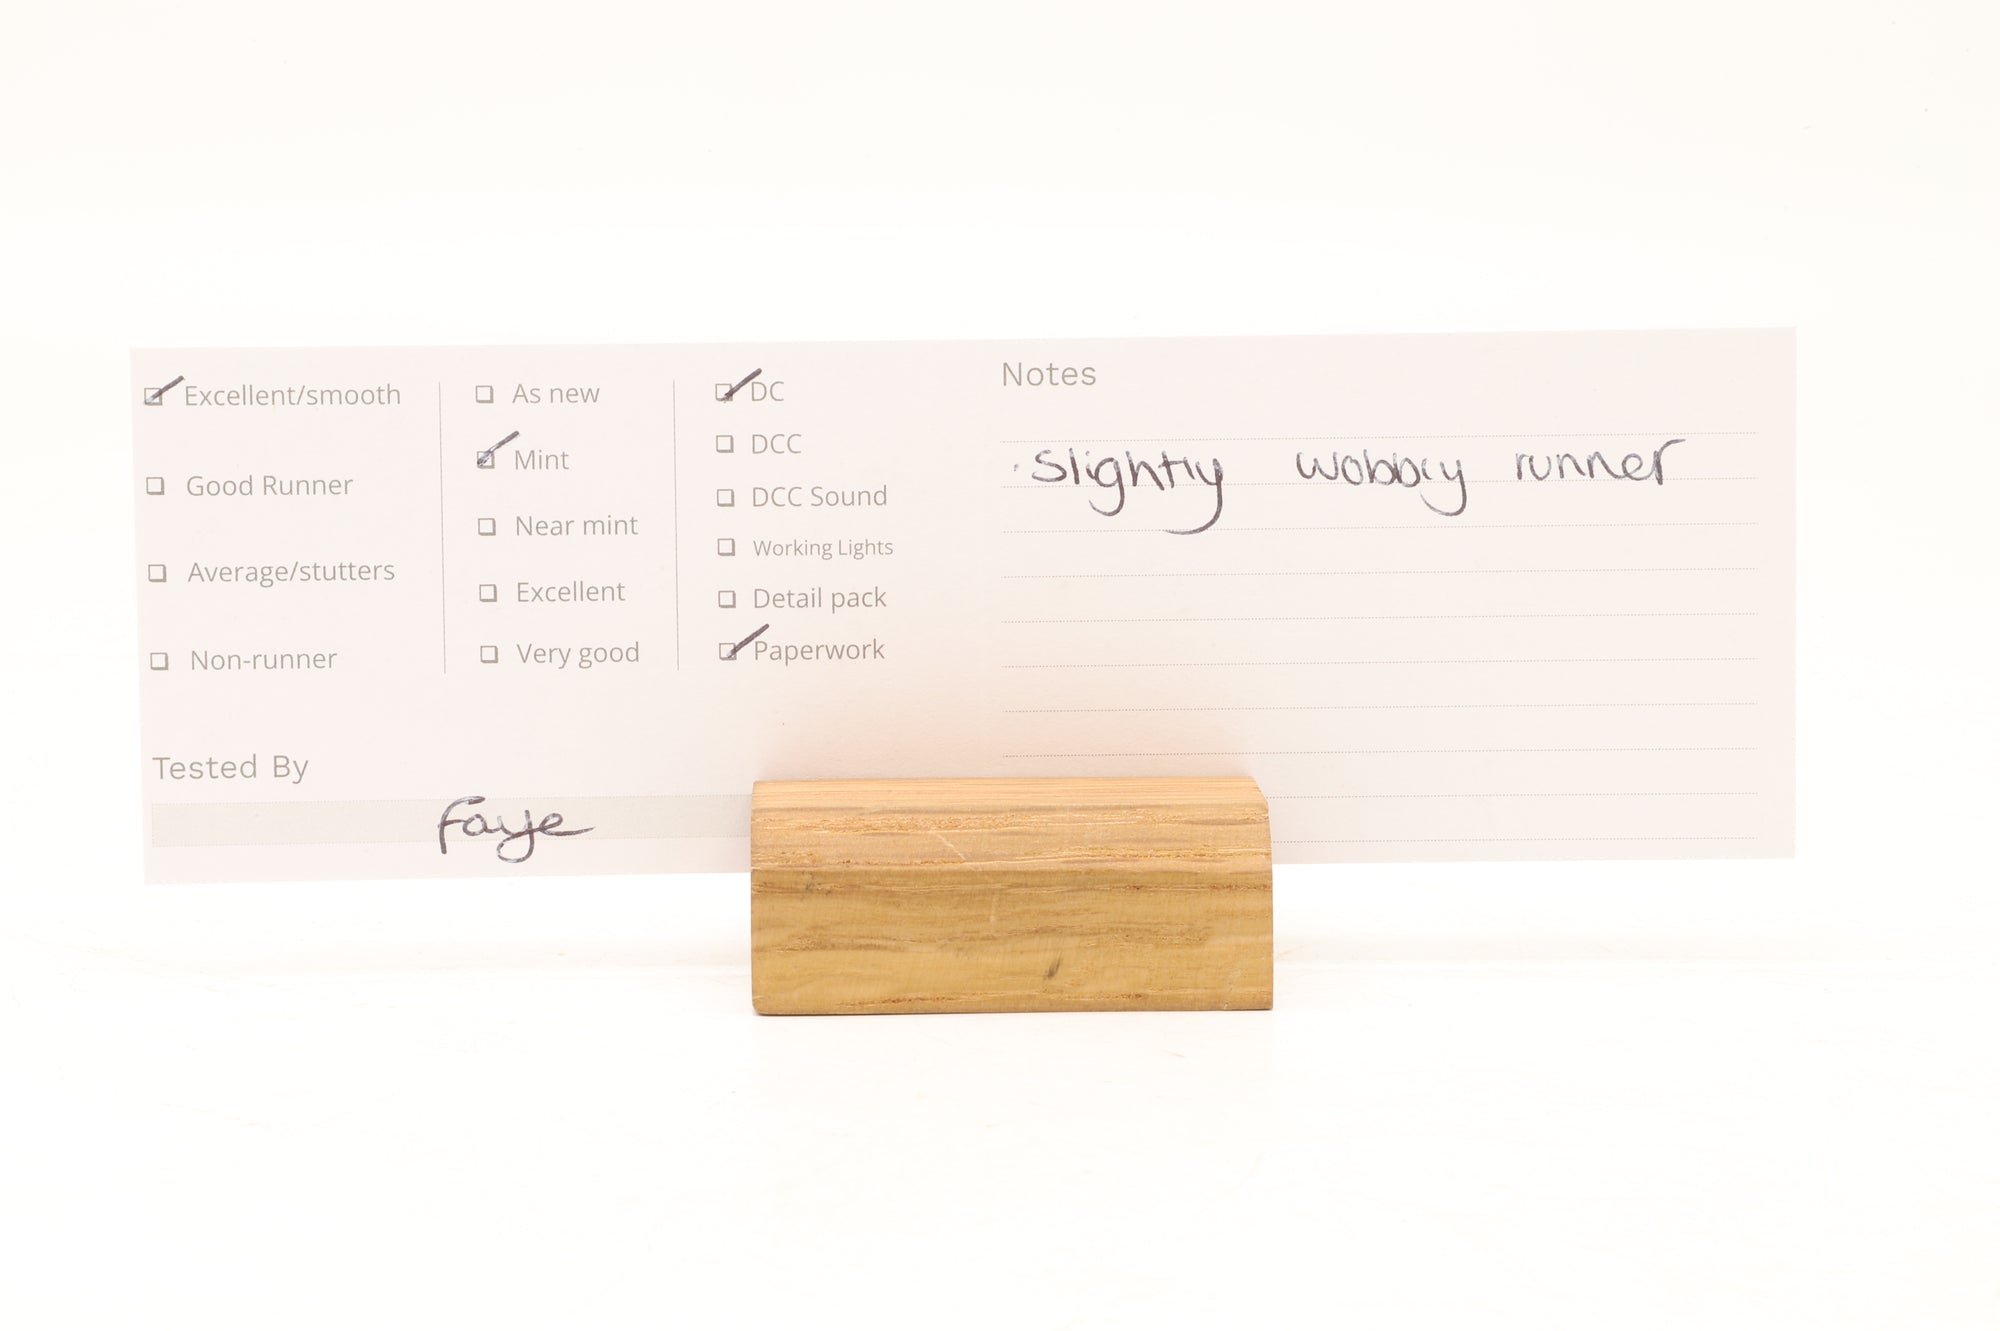 Excellent/smooth
Good Runner
Average/stutters
Non-runner
As new
Mint
Near mint
Excellent
Very good
DC
DCC
DCC Sound
Working Lights
Detail pack
Paperwork
Tested By
Faye
Notes
· Slightly wobbly runner